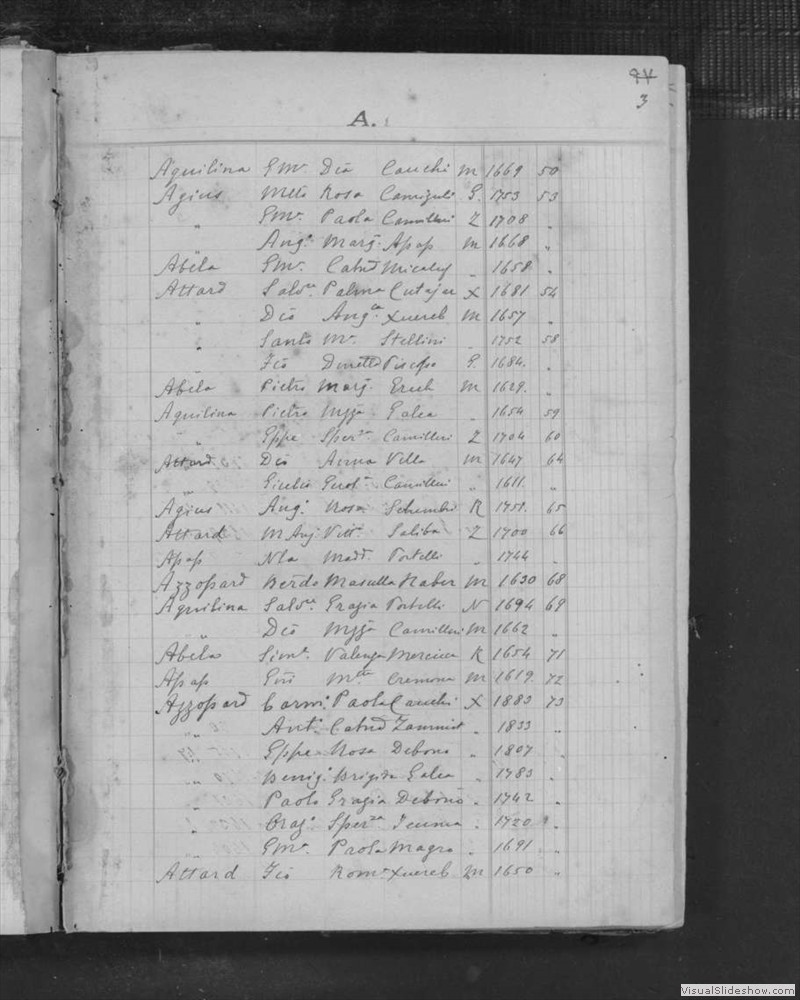 94
3
A.
Aquilina Gmo. Dca Cauchi M 1669 50
Agius Mtto Rosa Camiguli G. 1753 53
" Gmo. Paola Camilleri Z 1708 "
" Ang.o Marg. Apap M 1668 "
Abela Gmo. Catnd Micalef " 1658 "
Attard Salvre Palma Cutajar X 1681 54
" Dco Angca Xuereb M 1657 "
" Santo Ma. Stellini 1752 58
Fco Piscopo G. 1684. "
Abela Pietro Marg. M 1629. "
Aquilina Pietro Mzza Galea " 1654 59
" Gppe Sperza Camilleri Z 1704 60
Attard Dco Anna Vella M 1647 64
" Giulio Camilleri " 1611. "
Agius Ang.o Rosa Schembri R 1751. 65
Attard M Ang. Vitt. Saliba Z 1700 66
Apap Nla Madd. Portelli " 1744 "
Azzopard Berdo Masella Naber M 1630 68
Aquilina Salvre Grazia Portelli N 1694 69
" Dco Mzza Camilleri M 1662 "
Abela Simo. Valenza Mercieca R 1654 71
Apap Gio Mtta Cremona M 1619. 72
Azzopard Carmo Paola Cauchi X 1883 73
" Anto Catnd Zammit " 1833 "
" Gppe Rosa Debono " 1807 "
" Benig.o Brigida Galea " 1783 "
" Paolo Grazia Debono " 1742 "
" Sperza " 1720 "
" Gmo. Paola Magro " 1691 "
Attard Fco Roma Xuereb M 1650 "
VisualSlideshow.com